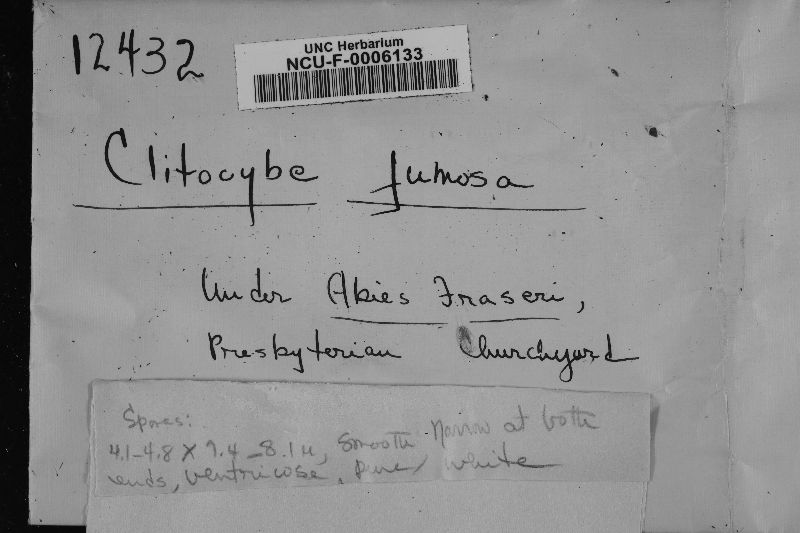 12432
UNC Herbarium
NCU-F-0006133
Clitocybe fumosa
Under Abies Fraseri,
Presbyterian Churchyard
Spores:
4.1-4.8 X 7.4-8.1µ, smooth narrow at both
ends, ventricose, pure white